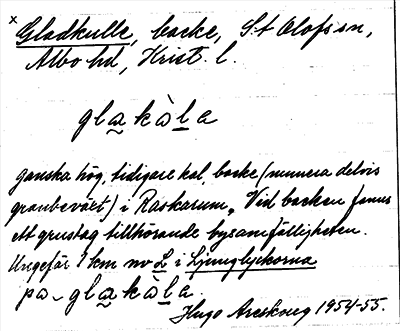 x Gladkulle, backe, S:t Olofs sn,
Albo hd, Krist. l.
gla̰kàl̲a
Ganska hög, tidigare kal, backe (numera delvis
granbeväxt) i Raskarum. Vid backen finns
ett grustag tillhörande bysamfälligheten.
Ungefär 1 km nv L i Ljunglyckorna
pa-gla̰kàl̲a.
Hugo Areskoug 1954-55.